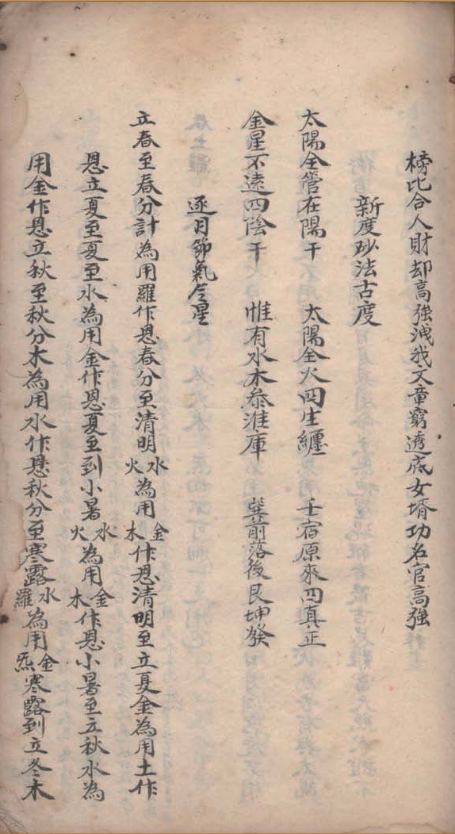 榜比合人財却高強洩我文章窮透底女壻功名官高強
新度玅法古度
太陽全管在陽干 太陽全火四生纏 壬宿原來四真正
金星不遠四陰干 惟有水木叅淮庫 巽前落後艮坤癸
逐月節氣令星
立春至春分計為用羅作恩春分至清明火水為用木金作恩清明至立夏金為用土作
恩立夏至夏至水為用金作恩夏至到小暑火水為用木金作恩小暑至立秋水為
用金作恩立秋至秋分木為用水作恩秋分至寒露羅水為用炁金寒露到立冬木